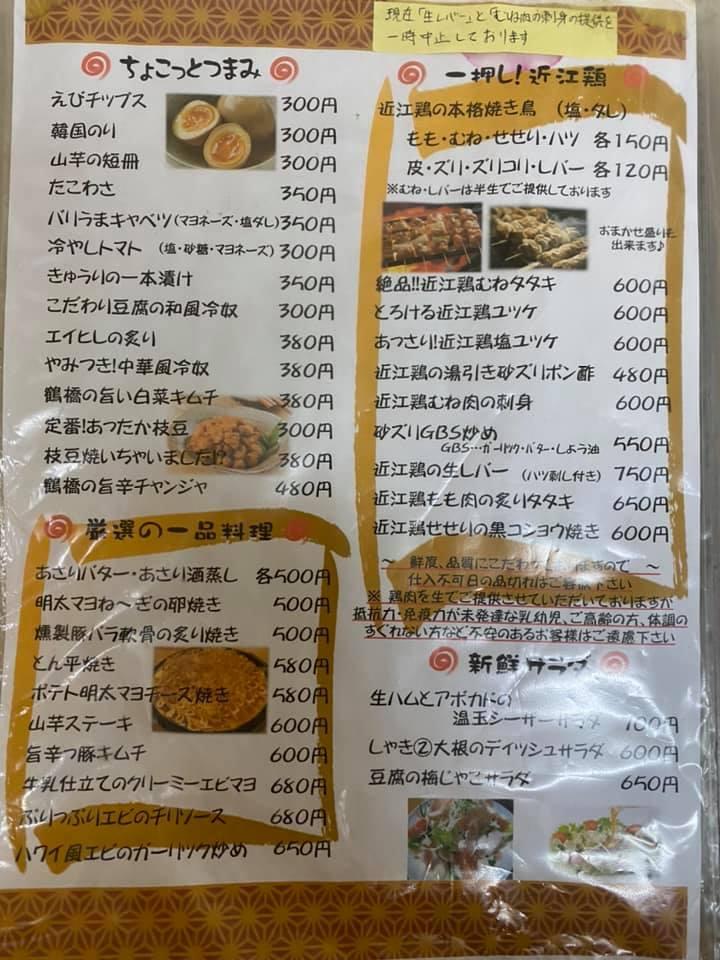 現在「生レバー」と「むね肉の刺身の提供を
一時中止しております
ちょこっとつまみ
えびチップス 300円
韓国のり 300円
山芋の短冊 300円
たこわさ 350円
バリうまキャベツ(マヨネーズ・塩ダレ) 350円
冷やしトマト (塩・砂糖・マヨネーズ) 300円
きゅうりの一本漬け 350円
こだわり豆腐の和風冷奴 300円
エイヒレの炙り 380円
やみつき!中華風冷奴 380円
鶴橋の旨い白菜キムチ 380円
定番!あつたか枝豆 300円
枝豆焼いちゃいました!? 380円
鶴橋の旨辛チャンジャ 480円
厳選の一品料理
あさりバター・あさり酒蒸し 各500円
明太マヨね〜ぎの卵焼き 500円
燻製豚バラ軟骨の炙り焼き 500円
とん平焼き 580円
ポテト明太マヨチーズ焼き 580円
山芋ステーキ 600円
旨辛っ豚キムチ 600円
牛乳仕立てのクリーミーエビマヨ 680円
ぷりっぷりエビのチリソース 680円
ハワイ風エビのガーリック炒め 650円
一押し!近江鶏
近江鶏の本格焼き鳥 (塩・タレ)
もも・むね・せせり・ハツ 各150円
皮・ズリ・ズリコリ・レバー 各120円
※むね・レバーは半生でご提供しております
おまかせ盛りも
出来ます♪
絶品!!近江鶏むねタタキ 600円
とろける近江鶏ユッケ 600円
あっさり!近江鶏塩ユッケ 600円
近江鶏の湯引き砂ズリポン酢 480円
近江鶏むね肉の刺身 600円
砂ズリGBS炒め 550円
GBS…ガーリック・バター・しょう油
近江鶏の生レバー (ハツ刺し付き) 750円
近江鶏もも肉の炙りタタキ 650円
近江鶏せせりの黒コショウ焼き 600円
〜 鮮度、品質にこだわ ますので 〜
仕入不可日の品切れはご容赦下さい
※ 鶏肉を生でご提供させていただいておりますが
抵抗力・免疫力が未発達な乳幼児、ご高齢の方、体調の
すぐれない方など不安のあるお客様はご遠慮下さい
新鮮サラダ
生ハムとアボカドの
温玉シーザーサラダ 700円
しゃき②大根のデイッシュサラダ 600円
豆腐の梅じゃこサラダ 650円